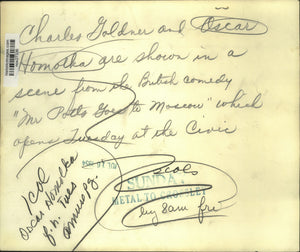 Charles Goldner and Oscar
Homolka are shown in a
scene from the British comedy
"Mr Potts Goes to Moscow" which
opens Tuesday at the Civic
1 col
Oscar Homolka
f.n. Tues
amusepg.
3 cols
SUNDAY
METAL TO CROPLEY
by 8am fri